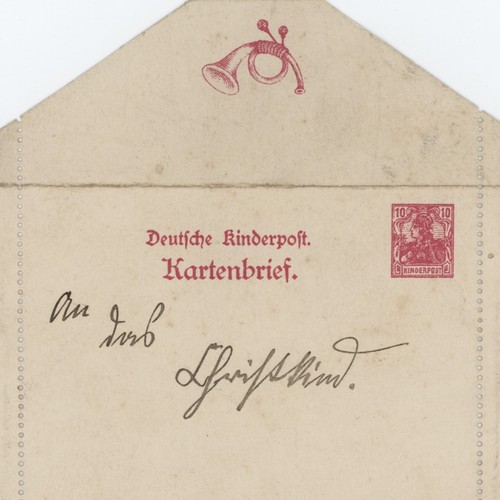 10 10
KINDERPOST
Deutsche Kinderpost.
Kartenbrief.
An
das
Christkind.